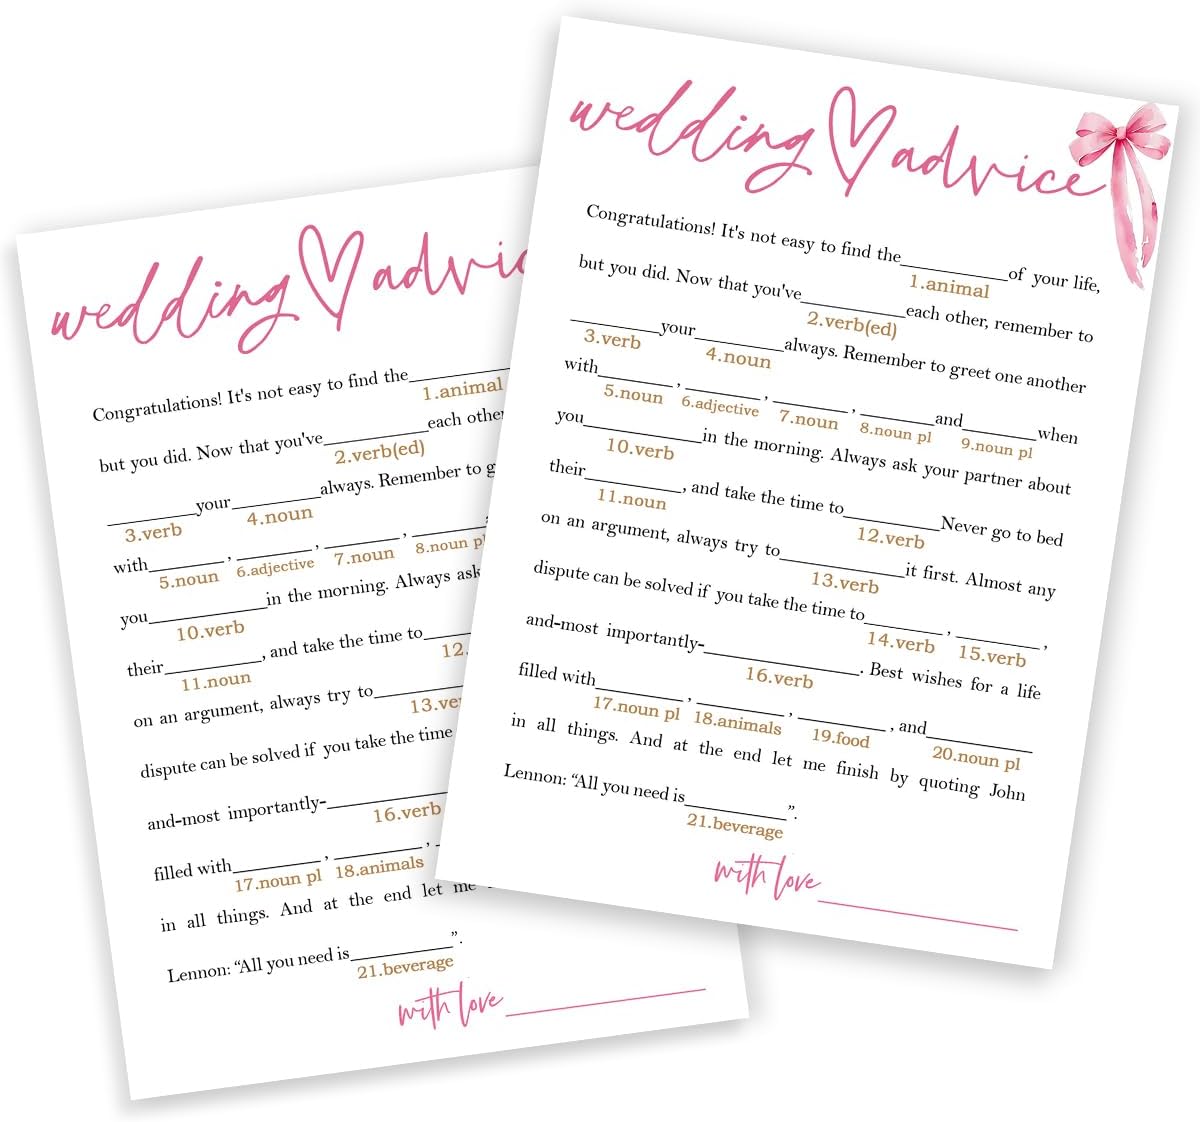 wedding advic
Congratulations! It's not easy to find the__________
1.animal
but you did. Now that you've__________each other
2.verb(ed)
__________your__________always. Remember to g
3.verb 4.noun
with________, ________, ________, ________a
5.noun 6.adjective 7.noun 8.noun pl
you__________in the morning. Always ask
10.verb
their__________, and take the time to_____
11.noun 12.
on an argument, always try to__________
13.ver
dispute can be solved if you take the time
and-most importantly-__________
16.verb
filled with__________, __________,
17.noun pl 18.animals
in all things. And at the end let me
Lennon: “All you need is__________”.
21.beverage
with love__________
wedding advice
Congratulations! It's not easy to find the__________of your life,
1.animal
but you did. Now that you've__________each other, remember to
2.verb(ed)
__________your__________always. Remember to greet one another
3.verb 4.noun
with________, ________, ________, ________and________when
5.noun 6.adjective 7.noun 8.noun pl 9.noun pl
you__________in the morning. Always ask your partner about
10.verb
their__________, and take the time to__________Never go to bed
11.noun 12.verb
on an argument, always try to__________it first. Almost any
13.verb
dispute can be solved if you take the time to________, ________,
14.verb 15.verb
and-most importantly-__________. Best wishes for a life
16.verb
filled with__________, __________, __________, and__________
17.noun pl 18.animals 19.food 20.noun pl
in all things. And at the end let me finish by quoting John
Lennon: “All you need is__________”.
21.beverage
with love__________